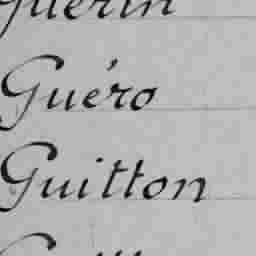 Guérin
Guéro
Guitton